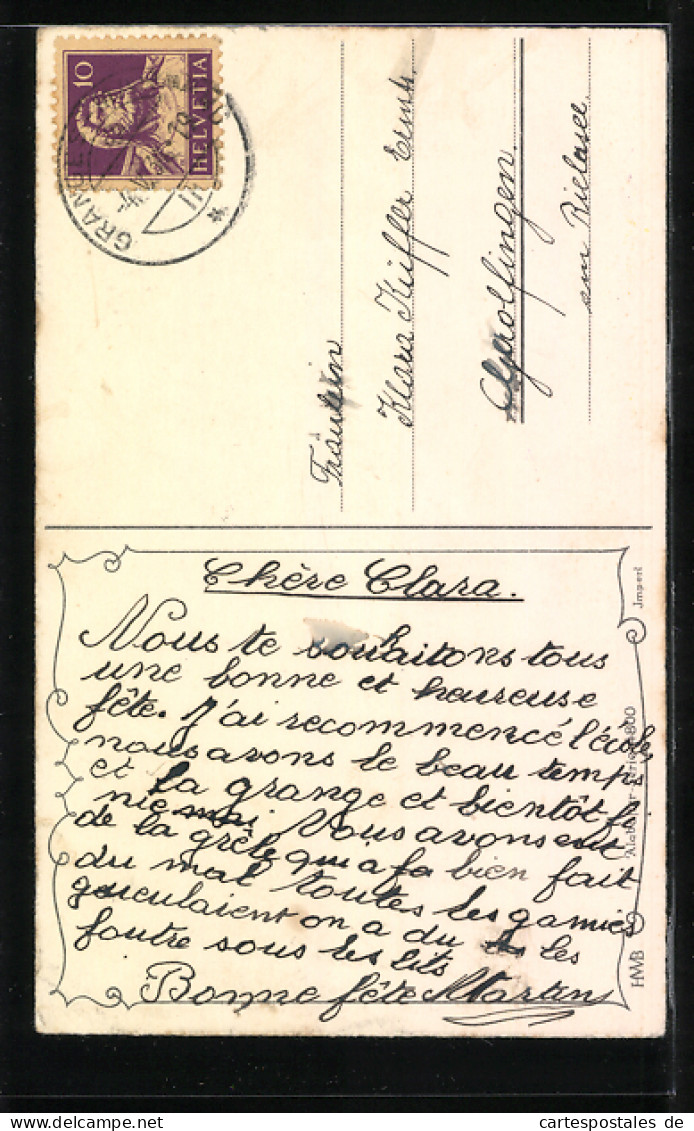 10
HELVETIA
GRANGES
Fräulein
Klara Küffer Ernsts.
Gerolfingen.
am Bielasee
Chère Clara.
Nous te souhaitons tous
une bonne et heureuse
fête. J'ai recommencé l'école,
nous avons le beau temps
et la grange et bientôt fi
nie Nous avons eut
de la grêle qui a fa bien fait
du mal toutes les gamies
gueulaient on a du les
foutre sous les lits
Bonne fête Martin
HMB
Import
www.cartespostales.de
cartespostales de